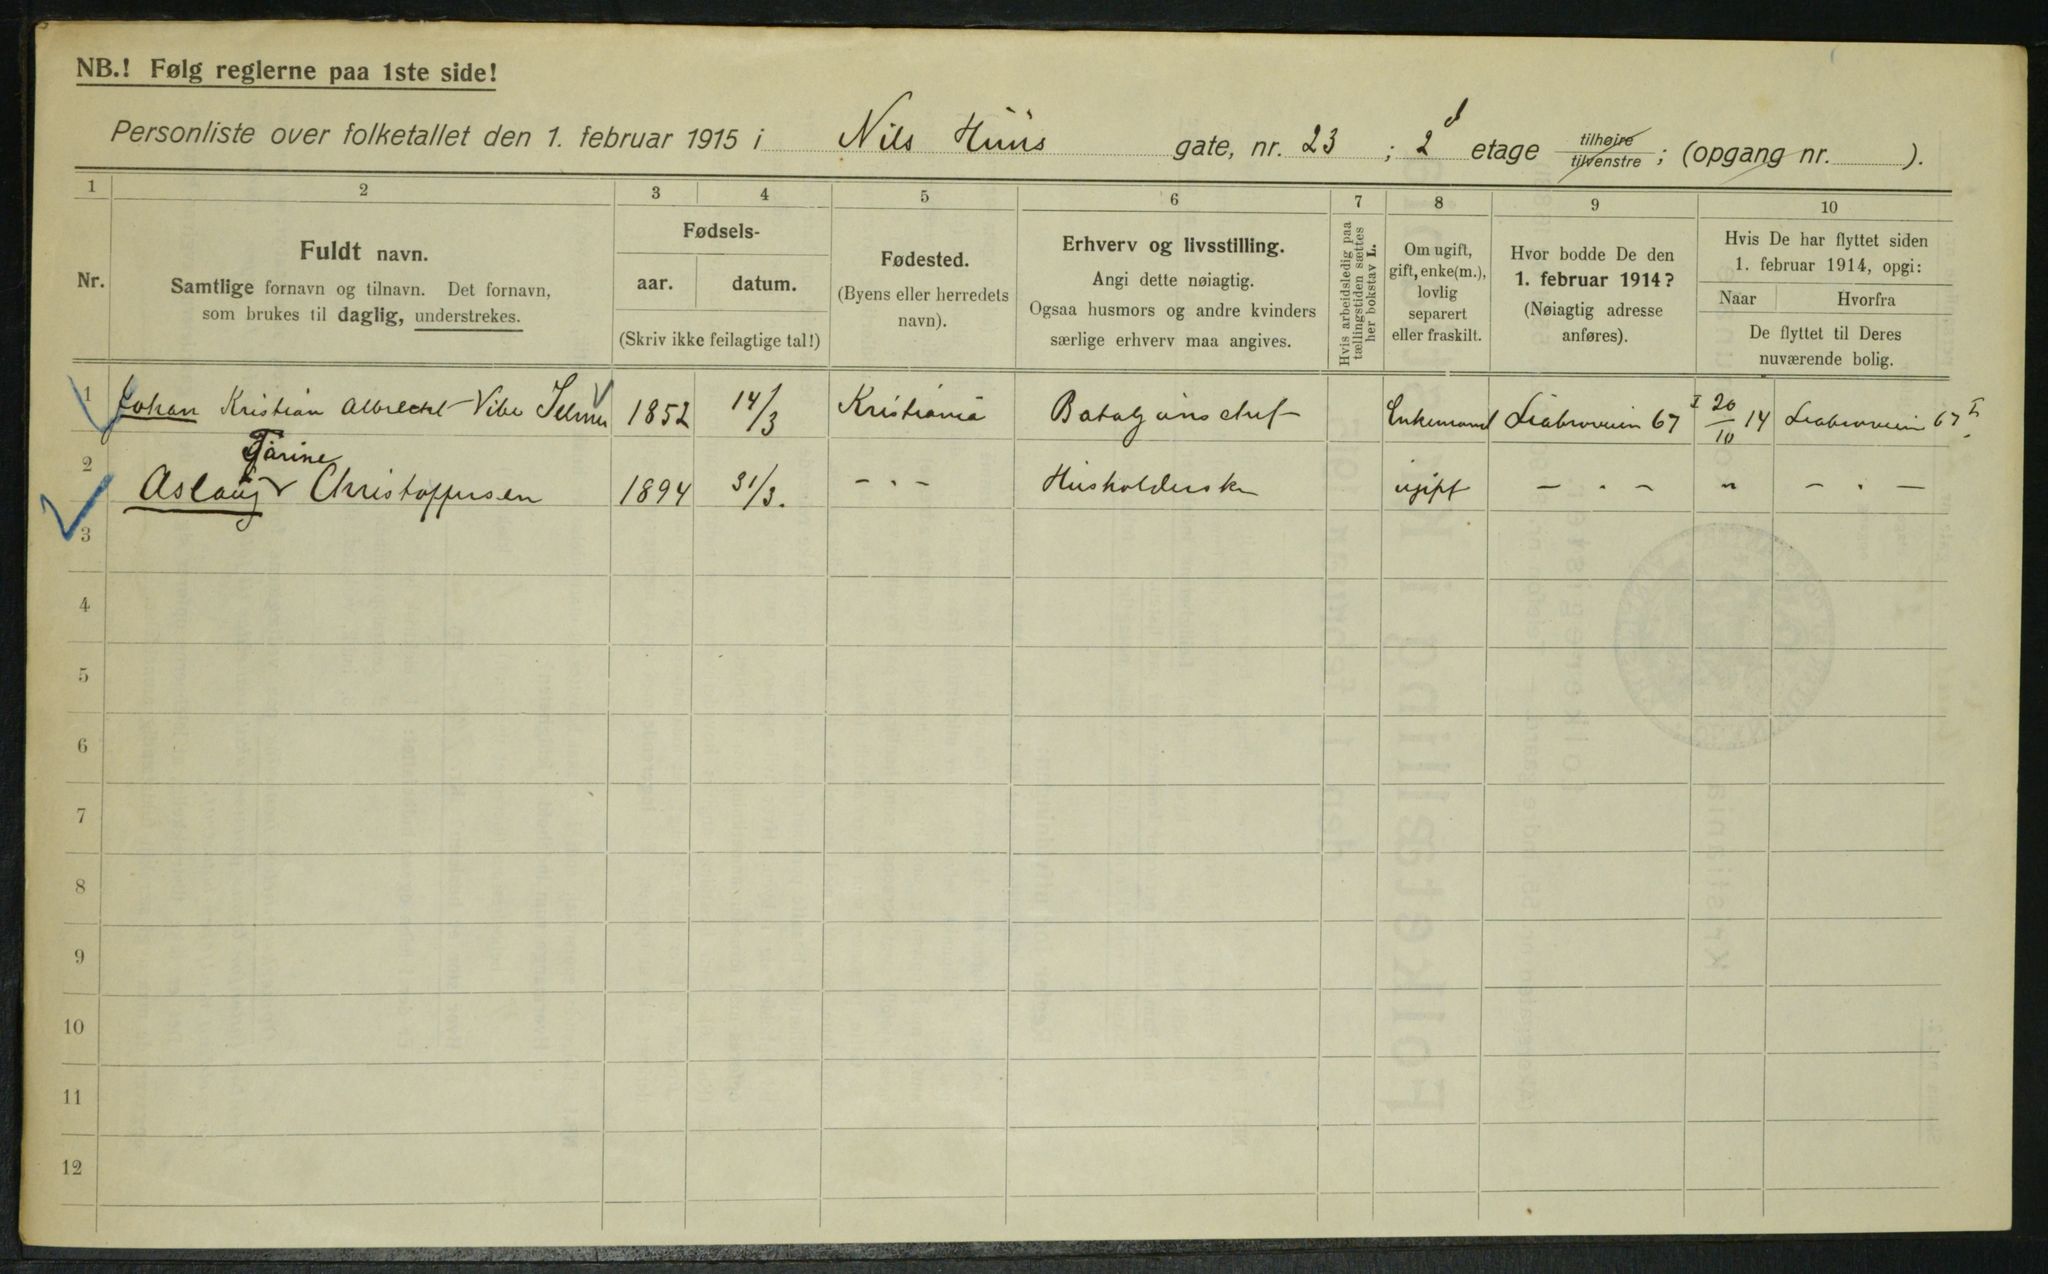 NB.! Følg reglerne paa 1ste side!
Personliste over folketallet den 1. februar 1915 i Nils Huus gate, nr. 23 ; 2d etage tilhøire tilvenstre ; (opgang nr. ).
1 2 3 4 5 6 7 8 9 10
Nr.
Fuldt navn.
Samtlige fornavn og tilnavn. Det fornavn,
som brukes til daglig, understrekes.
Fødsels-
aar. datum.
(Skriv ikke feilagtige tal!)
Fødested.
(Byens eller herredets
navn).
Erhverv og livsstilling.
Angi dette nøiagtig.
Ogsaa husmors og andre kvinders
særlige erhverv maa angives.
Hvis arbeidsledig paa
tællingstiden sættes
her bokstav L.
Om ugift,
gift, enke(m.),
lovlig
separert
eller fraskilt.
Hvor bodde De den
1. februar 1914?
(Nøiagtig adresse
anføres).
Hvis De har flyttet siden
1. februar 1914, opgi:
Naar Hvorfra
De flyttet til Deres
nuværende bolig.
1 Johan Kristian Albrecht Vibe Selmer 1852 14/3 Kristiania Enkemand Liabroveien 67 I 20/10 14 Liabroveien 67 I
Tarine
2 Aslaug Christoffersen 1894 31/3. - " - Husholderske ugift - " - " - " -
3
4
5
6
7
8
9
10
11
12